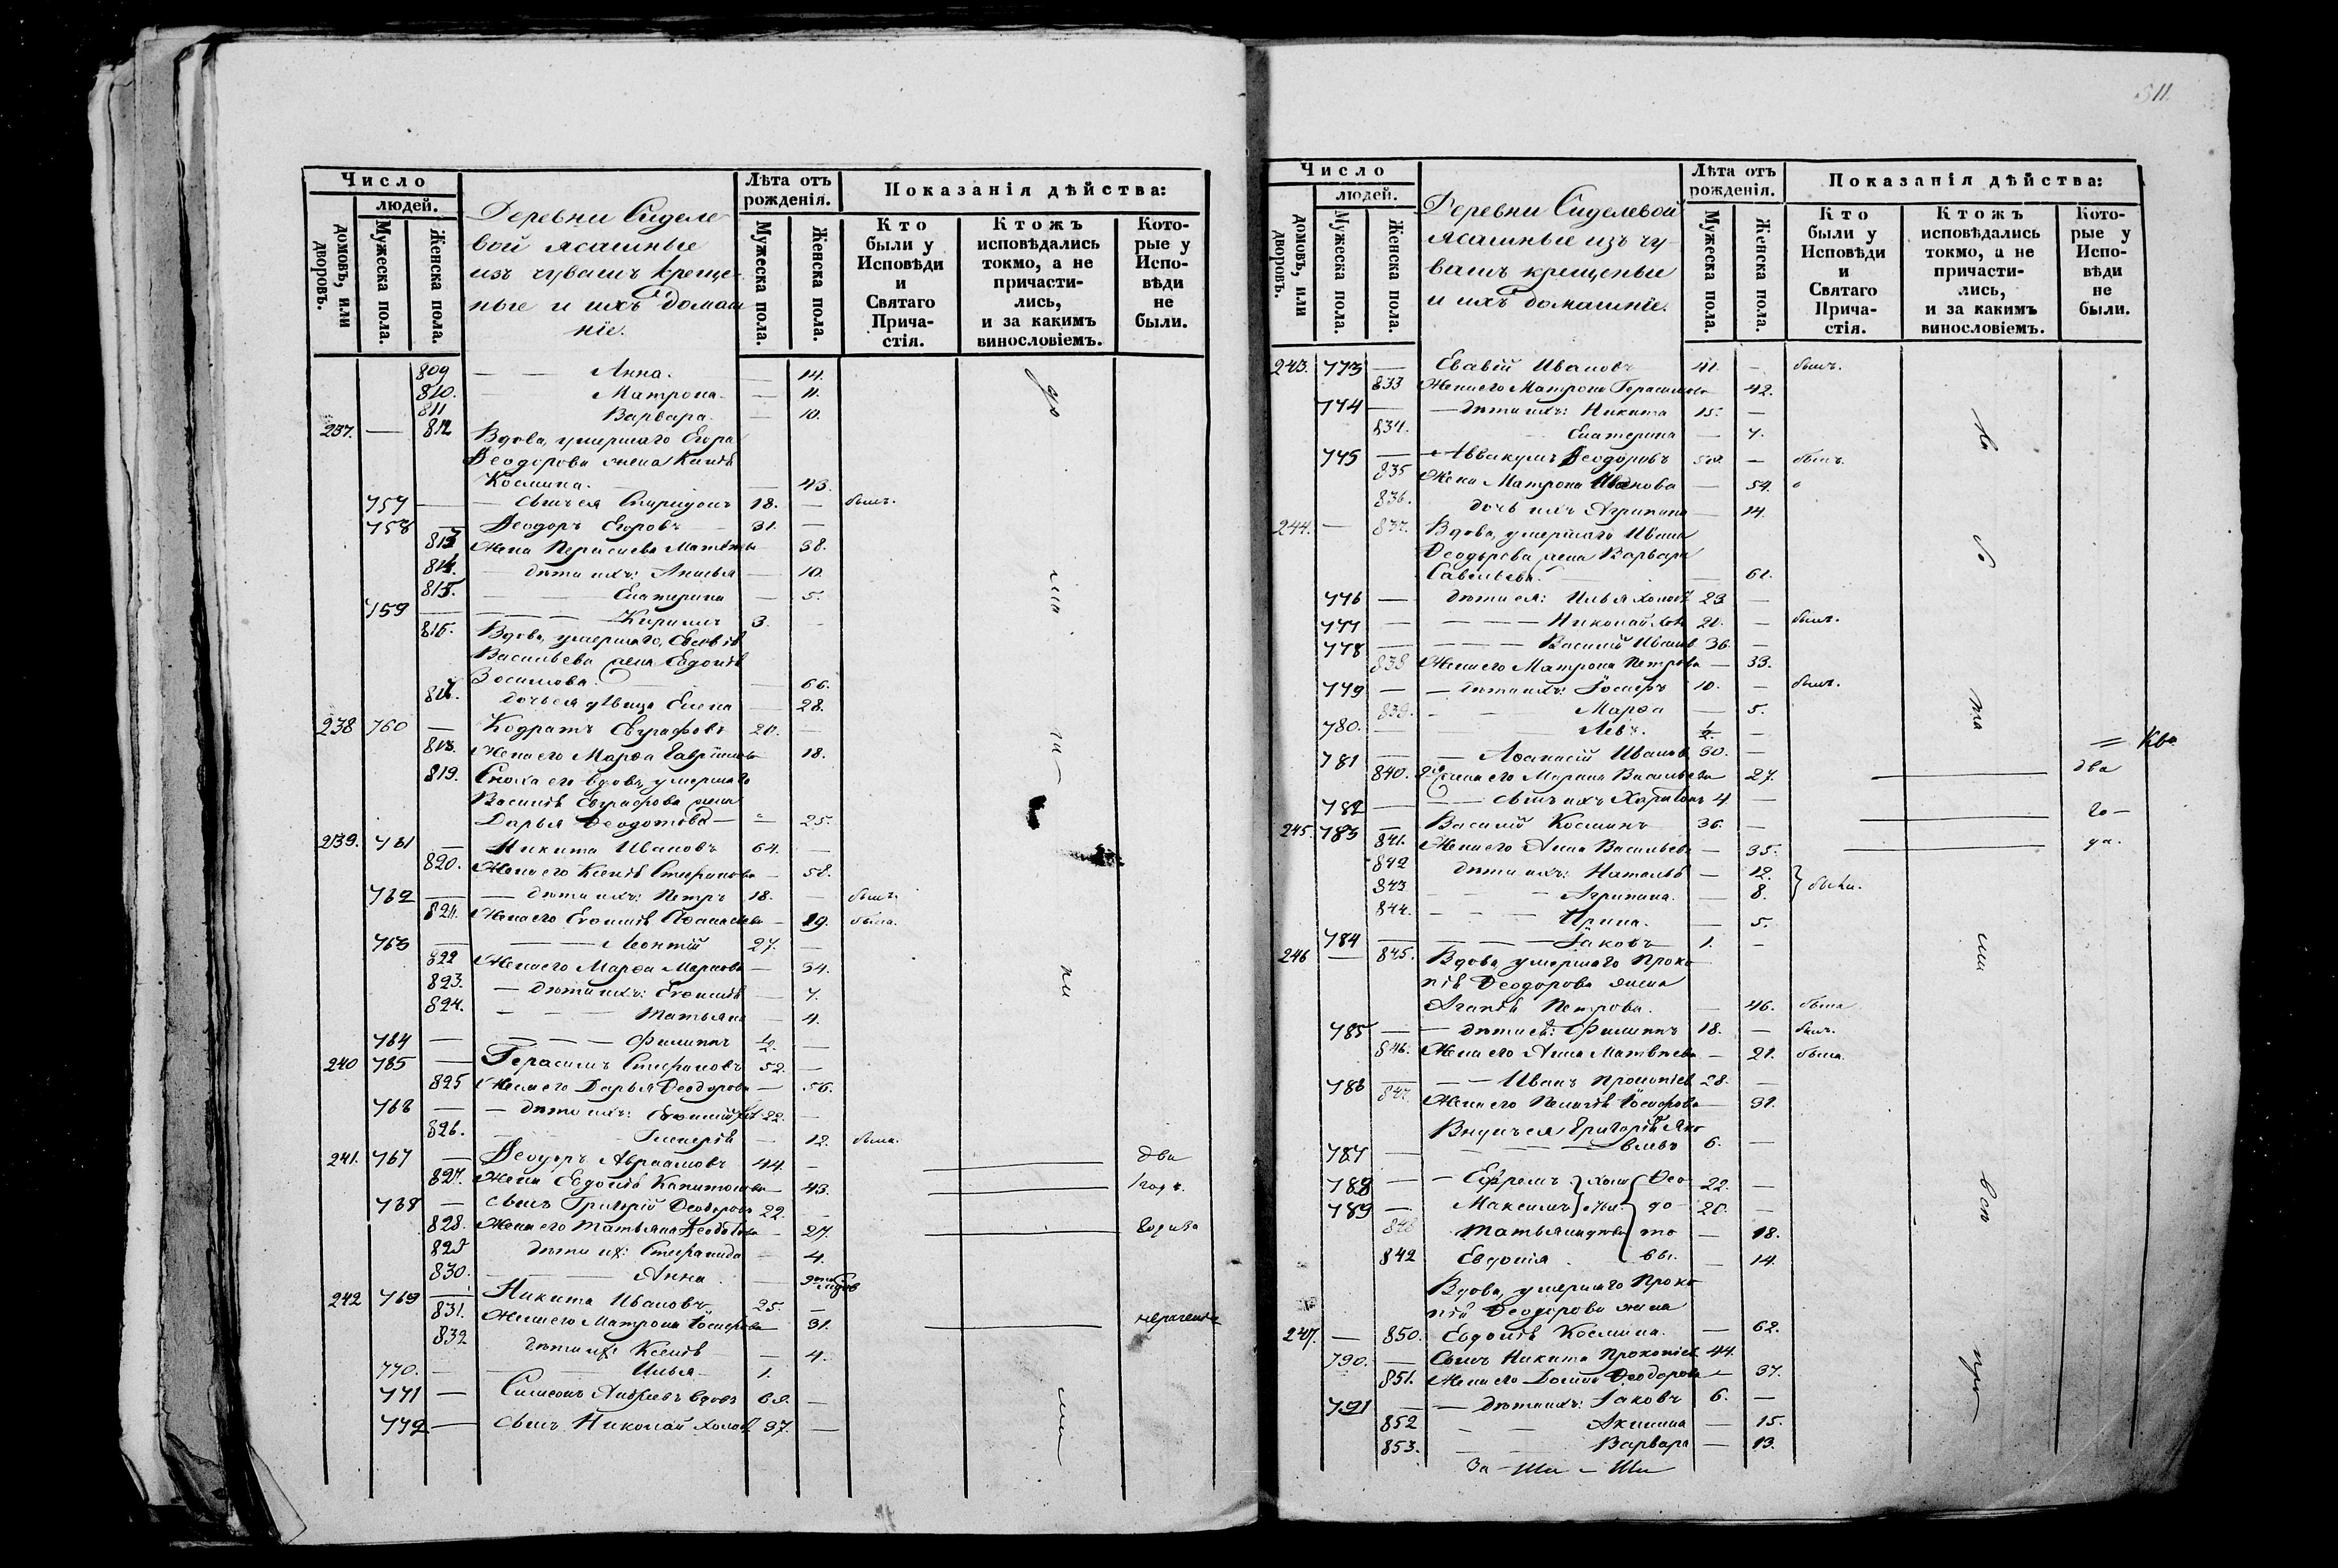 Число
людей.
домовъ, или дворовъ.
Мужеска пола.
Женска пола.
Деревни Сиделе-
вой ясашные
изъ чувашъ креще-
ные и ихъ домаш
ніе.
Лѣта отъ рожденія.
Мужеска пола.
Женска пола.
Показанія дѣйства:
Кто были у Исповѣди и Святаго Прича-стія.
Ктожъ исповѣдались токмо, а не причасти-лись, и за какимъ винословіемъ.
Кото-рые у Испо-вѣди не были.
809 — — Анна. — 14.
810. Матрона. — 11.
811 Варвара. — 10.
237. — 812 Вдова, умершаго Егора
Ѳеодорова жена
Космина. — 43.
757 — — сынъ ея Спиридонъ 18. — былъ.
758 — Ѳеодоръ Егоровъ — 31. —
813 Жена — 38.
814. — дѣти ихъ: — 10.
815. — — Екатерина — 5.
759 — — — Кириллъ 3. —
816. Вдова, умершаго,
Васильева жена Евдокія
— 66.
817. дочь ея дѣвица Елена — 28.
238 760 — Кодратъ Евграфовъ 20. —
818. Жена его Марѳа Гаврилова 18.
819. Сноха его вдова, умершаго
Василія Евграфова жена
Дарья Ѳеодотова — 25.
239. 761 — Никита Ивановъ 64. —
820. Жена его Ксенія Стефанова — 58.
762 — — дѣти ихъ: Петръ 18. — былъ
821. Жена его — 19. была.
763 — — — Леонтій 27. —
822 Жена его Марѳа Маркова — 34.
823. — дѣти ихъ: — 7.
824. — — — Татьяна — 4.
764 — — — — Филиппъ ½. —
240 765 — Герасимъ Стефановъ 52. —
825 Жена его Дарья Ѳеодорова — 56.
766 — — дѣти ихъ: 22. —
826. — 12. была.
241. 767 — Ѳеодоръ Авраамовъ 44. — два
827. Жена Евдокія Капитонова — 43. года.
768 — сынъ Григорій Ѳеодоровъ 22. —
828. Жена его Татьяна Ѳеодотова — 27.
829 дѣти ихъ: Стефанида — 4.
830. — — — Анна. —
242 769 — Никита Ивановъ 25. —
831. Жена его Матрона Іосифова — 31.
832 дѣти ихъ Ксенія — 4.
770. — — Илья — 1.
771 — Симеонъ вдовъ 69. —
772 — сынъ Николай холостъ 37. —
511.
Число
людей.
домовъ, или дворовъ.
Мужеска пола.
Женска пола.
Деревни Сиделевой
ясашные изъ чу-
вашъ крещеные
и ихъ домашніе.
Лѣта отъ рожденія.
Мужеска пола.
Женска пола.
Показанія дѣйства:
Кто были у Исповѣди и Святаго Прича-стія.
Ктожъ исповѣдались токмо, а не причасти-лись, и за какимъ винословіемъ.
Кото-рые у Испо-вѣди не были.
243. 773 — Ивановъ 41. — былъ.
833 Жена его Матрона Герасимова 42.
774 — — дѣти ихъ: Никита 15. —
834. Екатерина — 7.
775 — Аввакумъ Ѳеодоровъ — былъ.
835 Жена Матрона Иванова — 54.
836. дочь ихъ Агрипина — 14.
244. — 837. Вдова, умершаго Ивана
Ѳеодорова жена Варвара
Савельева. — 61.
776 — дѣти ея: Илья холостъ 23 —
777 — — — — Николай 20. — былъ.
778 — — — — Василій Ивановъ 36. —
838 Жена его Матрона Петрова — 33.
779 — — дѣти ихъ: Іосифъ 10. — былъ.
839. — — Марѳа — 5.
780. — — Левъ. ½. —
781 — — Аѳанасій Ивановъ 30. —
840. жена его Марина Васильева 27. два
782 — — — сынъ ихъ Харитонъ 4 —
245. 783 — Василій Косминъ 36. — го-
841. Жена его Анна Васильева — 35. да.
842 дѣти ихъ: Наталія — 12. были.
843 — — — Агрипина. — 8.
844. — — — Ирина. — 5.
784 — — — — Іаковъ 1. —
246 — 845. Вдова, умершаго Проко-
пія Ѳеодорова жена
Агапія Петрова. — 46. была
785 — — дѣти ея: Филиппъ 18. — былъ.
846. Жена его Анна Матвѣева — 21. была.
786 — — — Иванъ Прокопіевъ 28. —
847. Жена его Пелагія Іосифова — 31.
Внукъ ея Григорій Яко
787 — — — — влевъ 6. —
788 — — Ефремъ Ѳео- 22. —
789 — Максимъ до- 20. —
848 Татьяна то — 18.
849 Евдокія. вы. — 14.
Вдова, умершаго Проко
пія Ѳеодорова жена
247. — 850. Евдокія Космина. — 62.
790. — Сынъ Никита Прокопіевъ 44.
851. Жена его Ѳеодорова — 37.
791 — — дѣти ихъ: Іаковъ 6. —
852 — — Акилина — 15.
853. — — Варвара — 13.